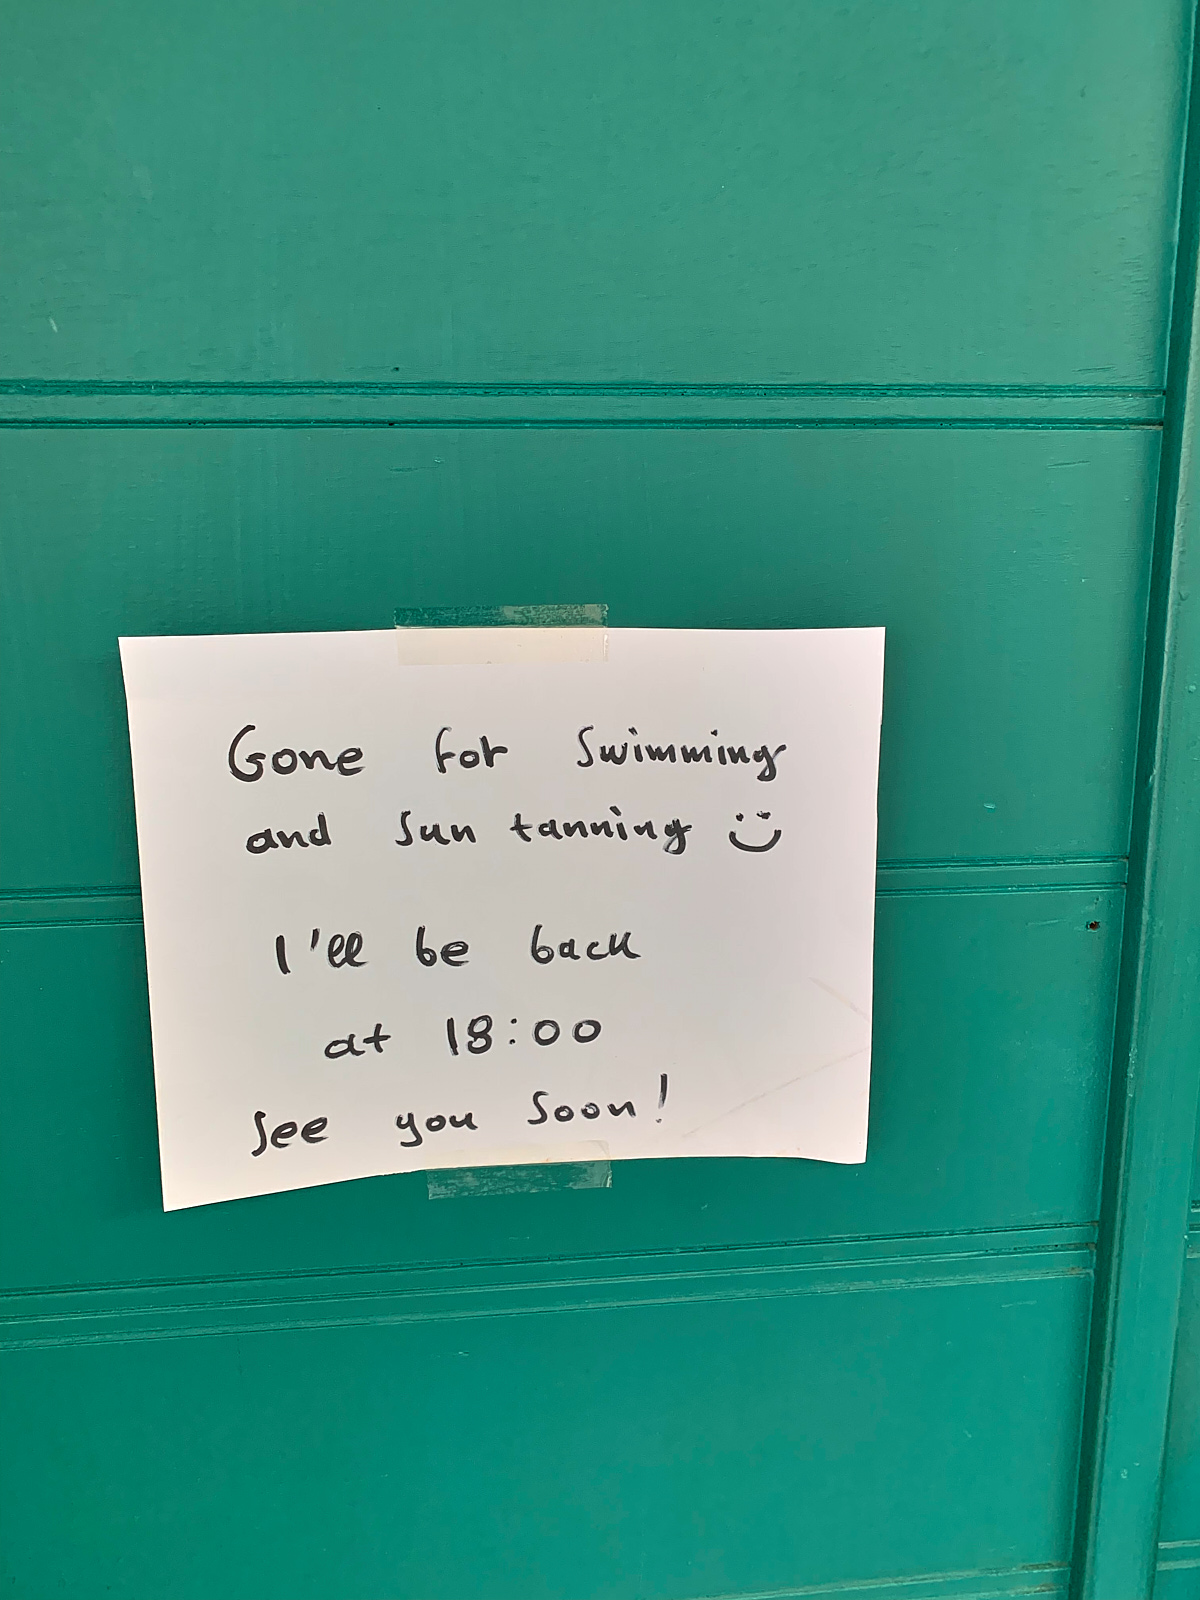 Gone for Swimming
and Sun tanning ☺
I'll be back
at 18:00
See you Soon!